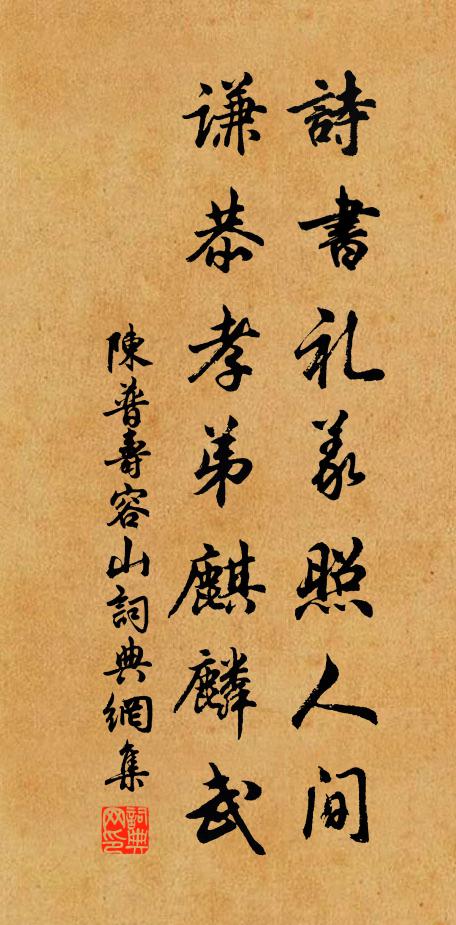 詩書礼義照人间
謙恭孝弟麒麟武
陳普壽容山詞典網集
詞典网印